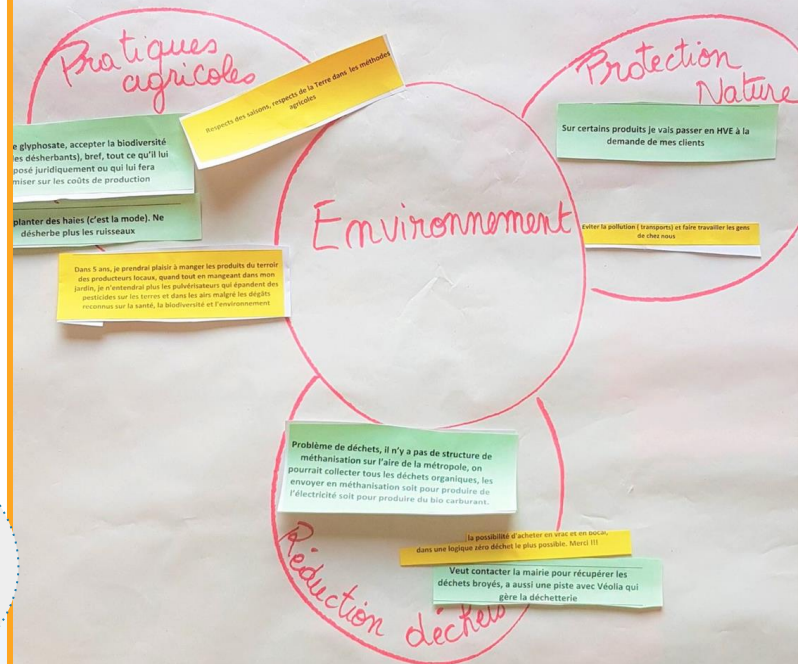 Pratiques
agricoles
Respects des saisons, respects de la Terre dans les méthodes
agricoles
e glyphosate, accepter la biodiversité
es désherbants), bref, tout ce qu'il lui
posé juridiquement ou qui lui fera
miser sur les coûts de production
planter des haies (c'est la mode). Ne
désherbe plus les ruisseaux
Dans 5 ans, je prendrai plaisir à manger les produits du terroir
des producteurs locaux, quand tout en mangeant dans mon
jardin, je n'entendrai plus les pulvérisateurs qui épandent des
pesticides sur les terres et dans les airs malgré les dégâts
reconnus sur la santé, la biodiversité et l'environnement
Environnement
Protection
Nature
Sur certains produits je vais passer en HVE à la
demande de mes clients
Eviter la pollution ( transports) et faire travailler les gens
de chez nous
Problème de déchets, il n'y a pas de structure de
méthanisation sur l'aire de la métropole, on
pourrait collecter tous les déchets organiques, les
envoyer en méthanisation soit pour produire de
l'électricité soit pour produire du bio carburant.
la possibilité d'acheter en vrac et en bocal,
dans une logique zéro déchet le plus possible. Merci !!!
Veut contacter la mairie pour récupérer les
déchets broyés, a aussi une piste avec Véolia qui
gère la déchetterie
Réduction déchets